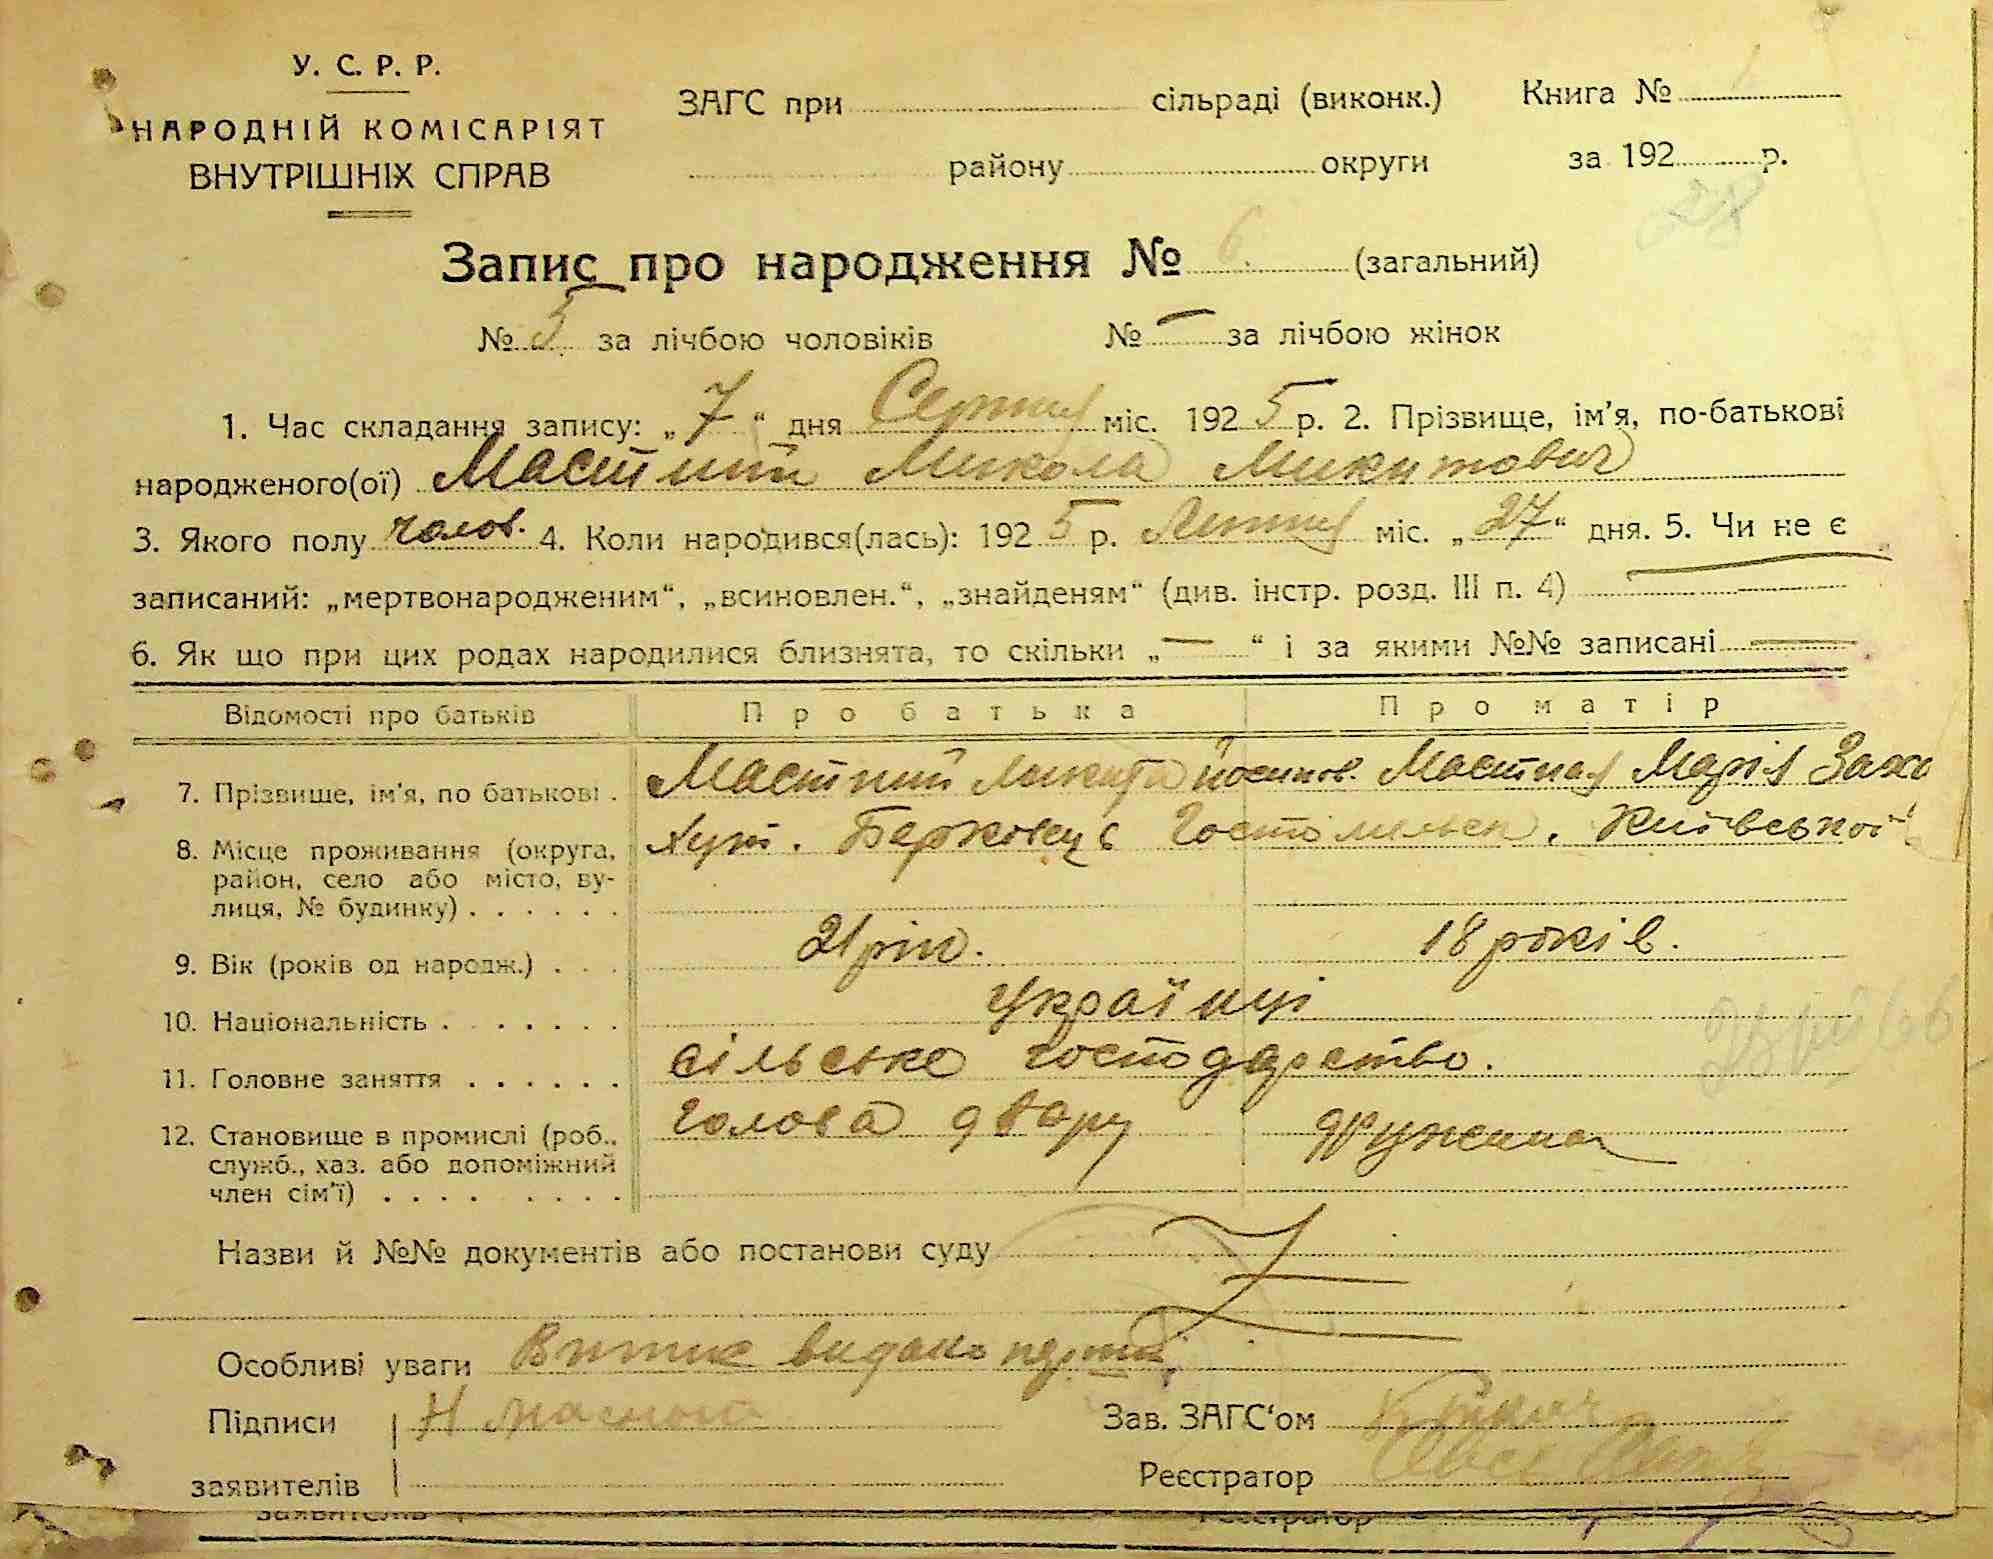 У. С. Р. Р.
НАРОДНІЙ КОМІСАРІЯТ
ВНУТРІШНІХ СПРАВ
ЗАГС при сільраді (виконк.) Книга № 1
району округи за 192 р.
28
Запис про народження № 6. (загальний)
№ 5 за лічбою чоловіків № — за лічбою жінок
1. Час складання запису: „7“ дня Серпня міс. 1925 р. 2. Прізвище, ім’я, по-батькові
народженого(ої) Мастний Микола Микитович
3. Якого полу чолов. 4. Коли народився(лась): 1925 р. Липня міс. „27“ дня. 5. Чи не є
записаний: „мертвонародженим“, „всиновлен.“, „знайденям“ (див. інстр. розд. III п. 4)
6. Як що при цих родах народилися близнята, то скільки „—“ і за якими №№ записані —
Відомості про батьків Про батька Про матір
7. Прізвище, ім’я, по батькові . Мастний Микита Йосипов. Мастная Марія Заха
8. Місце проживання (округа, хут. Берковець Гостомельск. Київської
район, село або місто, ву-
лиця, № будинку) . . . . . .
9. Вік (років од народж.) . . . 21 рік. 18 років.
10. Національність . . . . . . . Українці
11. Головне заняття . . . . . . сільське господарство.
12. Становище в промислі (роб., голова двору дружина
служб., хаз. або допоміжний
член сім’ї) . . . . . . . . .
Назви й №№ документів або постанови суду
Особливі уваги Витик видано
Підписи Н Мастний Зав. ЗАГС‘ом
заявителів Реєстратор
заявителів Реєстратор